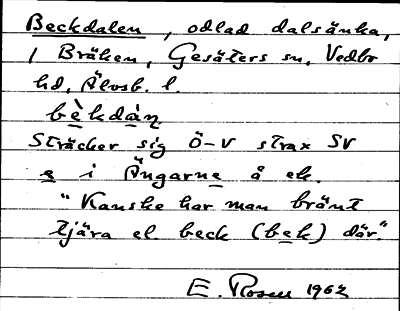 Beckdalen, odlad dalsänka,
/ Bräken, Gesäters sn, Vedbo
hd, Älvsb. l.
bèkdàn
Sträcker sig Ö-V strax SV
s i Ängarne å ek.
"Kanske har man bränt
tjära el. beck (bek) där."
E. Rosen 1962